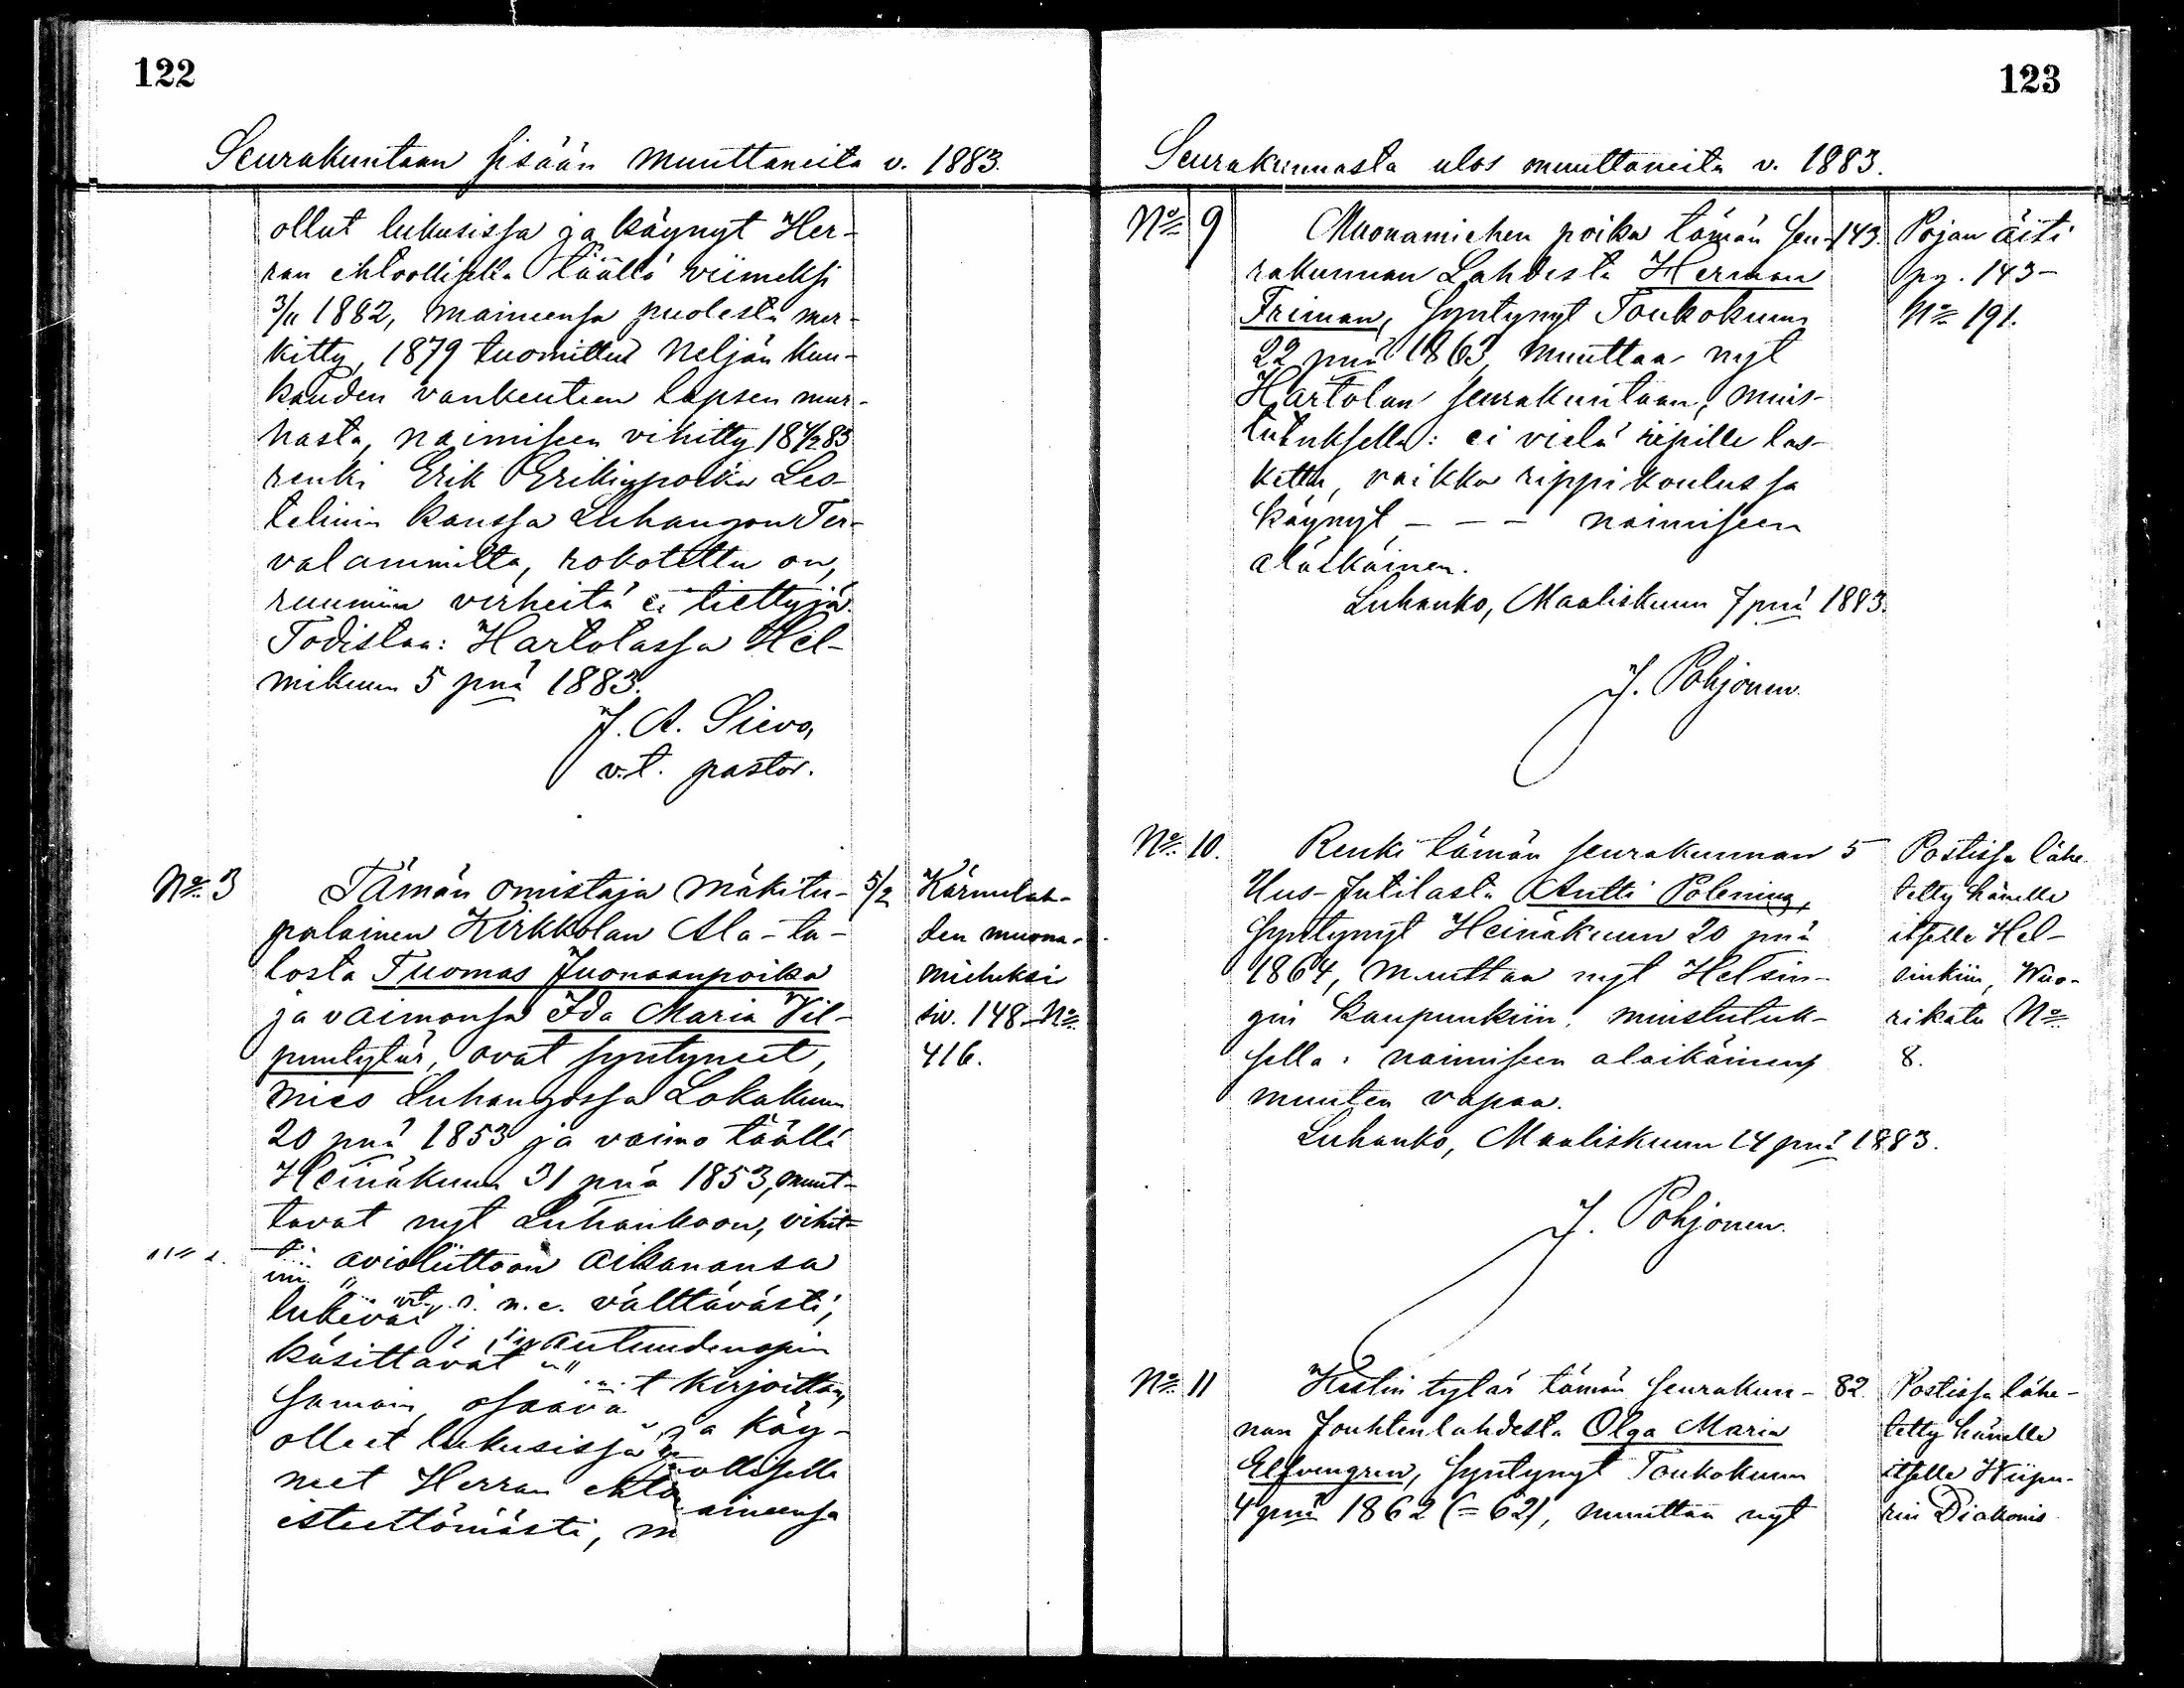 122
Seurakuntaan sisään muuttaneita v. 1883.
ollut lukusissa ja käynyt Her-
ran ehtoollisella täällä viimeksi
3/11 1882, maineensa puolesta mer-
kitty, 1879 tuomittu neljän kuu-
kauden vankeuteen lapsen mur-
hasta, naimiseen vihitty 18 4/2 83
renki Erik Erikinpoika Les-
telinin kanssa Luhangon Ter-
valammilta, rokotettu on,
ruumiin virheitä ei tiettyjä
Todistaa: Hartolassa Hel-
mikuun 5 pnä 1883.
J. A. Sieva,
v.t. pastor.
No 3
Tämän omistaja mäkitu-
palainen Kirkkolan Ala-ta-
losta Tuomas Juonaanpoika
ja vaimonsa Ida Maria Vil-
puntytär, ovat syntyneet,
mies Luhangossa Lokakuun
20 pnä 1853 ja vaimo täällä
Heinäkuun 31 pnä 1853, muut-
tavat nyt Luhankoon, vihit-
avioliittoon aikanansa
lukevat s. n. e. välttävästi,
käsittävät autuudenopin
samoin, osaavat kirjoittaa,
olleet lukusissa ja käy-
neet Herran ehtoollisella
esteettömästi, maineensa
5/2
Kärmelah-
den muona-
mieheksi
siv. 148 No
416.
123
Seurakunnasta ulos muuttaneita v. 1883.
No 9
Muonamiehen poika tämän seu-
rakunnan Lahdesta Herman
Friman, syntynyt Toukokuun
22 pnä 1863, muuttaa nyt
Hartolan seurakuntaan, muis-
tutuksella: ei vielä ripille las-
kettu, vaikka rippikoulussa
käynyt, — — — naimiseen
alaikäinen.
Luhanko, Maaliskuun 7 pnä 1883.
J. Pohjonen.
143.
Pojan äiti
pg. 143 –
No 191.
No 10.
Renki tämän seurakunnan
Uus-Jutilasta Antti Polenius,
syntynyt Heinäkuun 20 pnä
1864, muuttaa nyt Helsin-
gin kaupunkiin, muistutuk-
sella: naimiseen alaikäinen,
muuten vapaa.
Luhanko, Maaliskuun 14 pnä 1883.
J. Pohjonen.
5
Postissa lähe-
tetty hänelle
itselle Hel-
sinkiin, Wuo-
rikatu No
8.
No 11
Kestin tytär tämän seurakun-
nan Jouhtenlahdesta Olga Maria
Elfvengren, syntynyt Toukokuun
4 pnä 1862 (= 62), muuttaa nyt
82.
Postissa lähe-
tetty hänelle
itselle Wiipu-
rin Diakonis